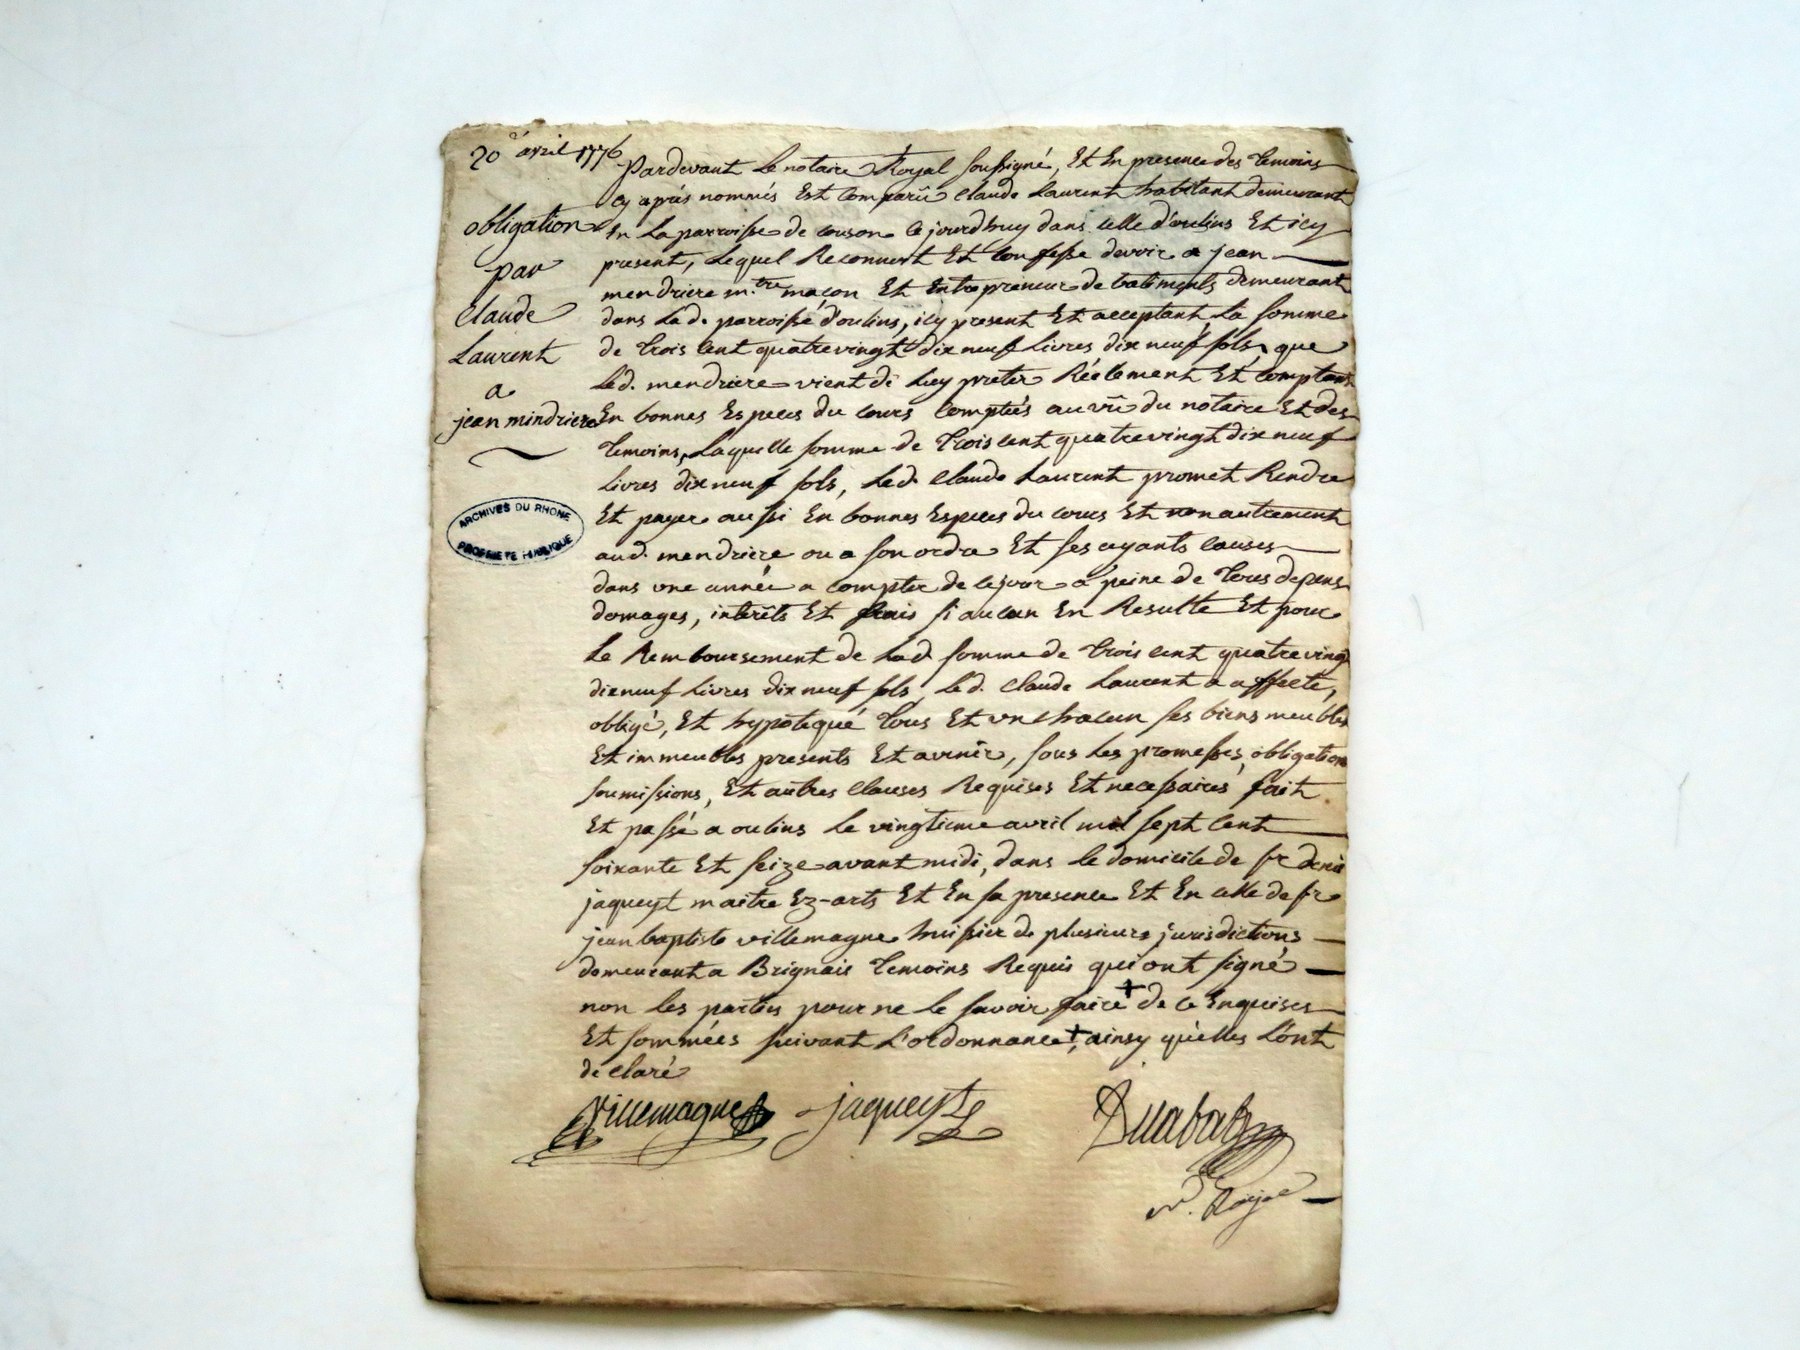 20 avril 1776
obligation
par
Claude
Laurent
a
jean mindriere
ARCHIVES DU RHONE
PROPRIETE PUBLIQUE
Pardevant Le notaire Royal soussigné, Et En presence des temoins
Cy aprés nommés Est Comparû Claude Laurent habitant demeurant
En La parroisse de Couson Ce jourdhuy dans Celle d'oulins Et icy
present, Lequel Reconnoit Et Confesse devoir a jean
mendriere m.tre maçon Et Entrepreneur de batiments demeurant
dans Lad. parroisse d'oulins, icy present Et acceptant La somme
de trois Cent quatrevingt dix neuf Livres dix neuf sols, que
Led. mendriere vient de Luy preter Réelement Et Comptant
En bonnes Especes du Cours Comptées au vû du notaire Et des
temoins, Laquelle somme de trois Cent quatrevingt dix neuf
Livres dix neuf sols, Led. Claude Laurent promet Rendre
Et payer aussi En bonnes Especes du Cours Et non autrement
aud. mendriere ou a son ordre Et ses ayants Causes
dans une année a Compter de Cejour a peine de tous depens
domages, interêts Et frais si aucun En Resulte Et pour
Le Remboursement de Lad. somme de trois Cent quatreving
dixneuf Livres dix neuf sols, Led. Claude Laurent a affecté,
obligé, Et hypotequé tous Et un chacun ses biens meubles
Et immeubles presents Et avenir, sous Les promesses, obligations
soumissions, Et autres Clauses Requises Et necessaires fait
Et passé a oulins Le vingtieme avril mil sept Cent
soixante Et seize avant midi, dans Le domicile de sr denis
jaqueyt maitre Ez-arts Et En sa presence Et En Celle de sr
jean baptiste villemagne huissier de plusieurs jurisdictions
demeurant a Brignais temoins Requis qui ont signé
non Les parties pour ne Le savoir faire + de Ce Enquises
Et sommées suivant L'ordonnance +, ainsy qu'elles L'ont
declaré
Villemagne jaqueyt
n.re Royal